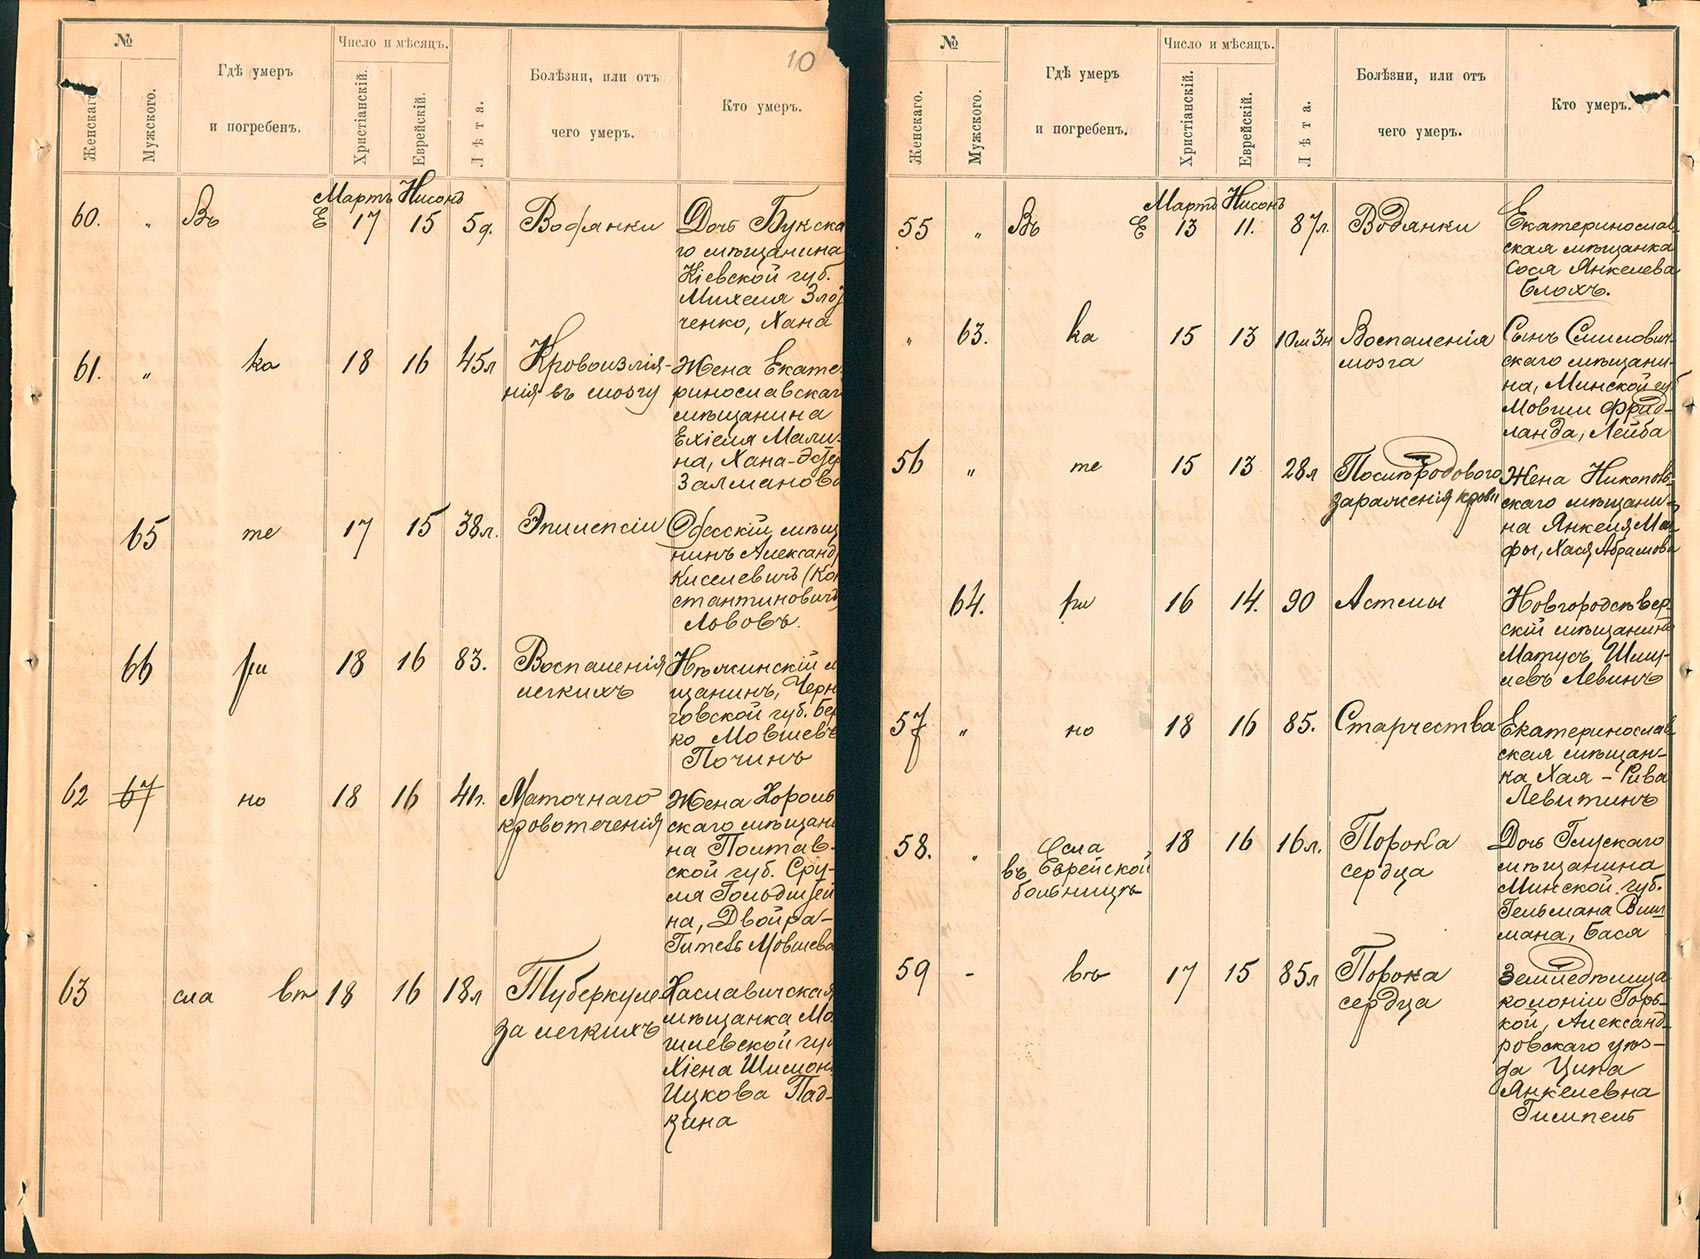 10
№
Женскаго.
Мужского.
Гдѣ умеръ
и погребенъ.
Число и мѣсяцъ.
Христіанскій.
Еврейскій.
Лѣта.
Болѣзни, или отъ
чего умеръ.
Кто умеръ.
Мартъ Нисонъ
60. „ Въ Е 17 15 5д. Водянки
Дочь Букска
го мѣщанина
Кіевской губ.
Михеля Зло
ченко, Хана
61. „ ка 18 16 45л Кровоизлія-
нія въ мозгу
Жена Екате
ринославскаг
мѣщанина
Ехіеля Мали-
на, Хана-Эсѳе
Залманова
65 те 17 15 38л. Эпилепсіи
Одесскій мѣщ
нинъ Александ
Киселевичъ (Ко
стантинович
Лововъ.
66 ри 18 16 83. Воспаленія
легкихъ
Нѣжинскій м
щанинъ, Черн
говской губ. Бер
ко Мовшевъ
Починъ
62 67 но 18 16 41г. Маточнаго
кровотеченія
Жена Хороль
скаго мѣщани
на Полтав-
ской губ. Сру-
ля Гольдштей
на, Двойра-
Гитель Мовшева
63 сла вт 18 16 18л Туберкуле
за легкихъ
Хаславичская
мѣщанка Мо
гилевской гу
Хіена Шимон
Ицкова Пад-
зина
№
Женскаго.
Мужского.
Гдѣ умеръ
и погребенъ.
Число и мѣсяцъ.
Христіанскій.
Еврейскій.
Лѣта.
Болѣзни, или отъ
чего умеръ.
Кто умеръ.
Мартъ Нисонъ
55 „ Въ Е 13 11. 87л. Водянки
Екатеринослав
ская мѣщанка
Сося Янкелева
Блохъ.
„ 63. ка 15 13 10м3н Воспаленія
мозга
Сынъ Смилович
скаго мѣщани-
на, Минской губ
Мовши Фрид-
ланда, Лейба
56 „ те 15 13 28л Послѣродового
зараженія крови
Жена Никополь
скаго мѣщани-
на Янкеля Ма
фы, Хася Абрамова
64. ри 16 14. 90 Астмы
Новгородсѣвер
скій мѣщанинъ
Матусъ Шму-
левъ Левинъ
57 „ но 18 16 85. Старчества
Екатеринослав
ская мѣщан-
ка Хая - Рива
Левитинъ
58. „ сла
въ Еврейской
больницѣ
18 16 16л. Порока
сердца
Дочь Глускаго
мѣщанина
Минской губ.
Гельмана Виш
мана, Бася
59 - въ 17 15 85л Порока
сердца
Земледѣлица
колоніи Горь-
кой, Александ
ровскаго уѣз-
да Ципа
Янкелевна
Гимпель